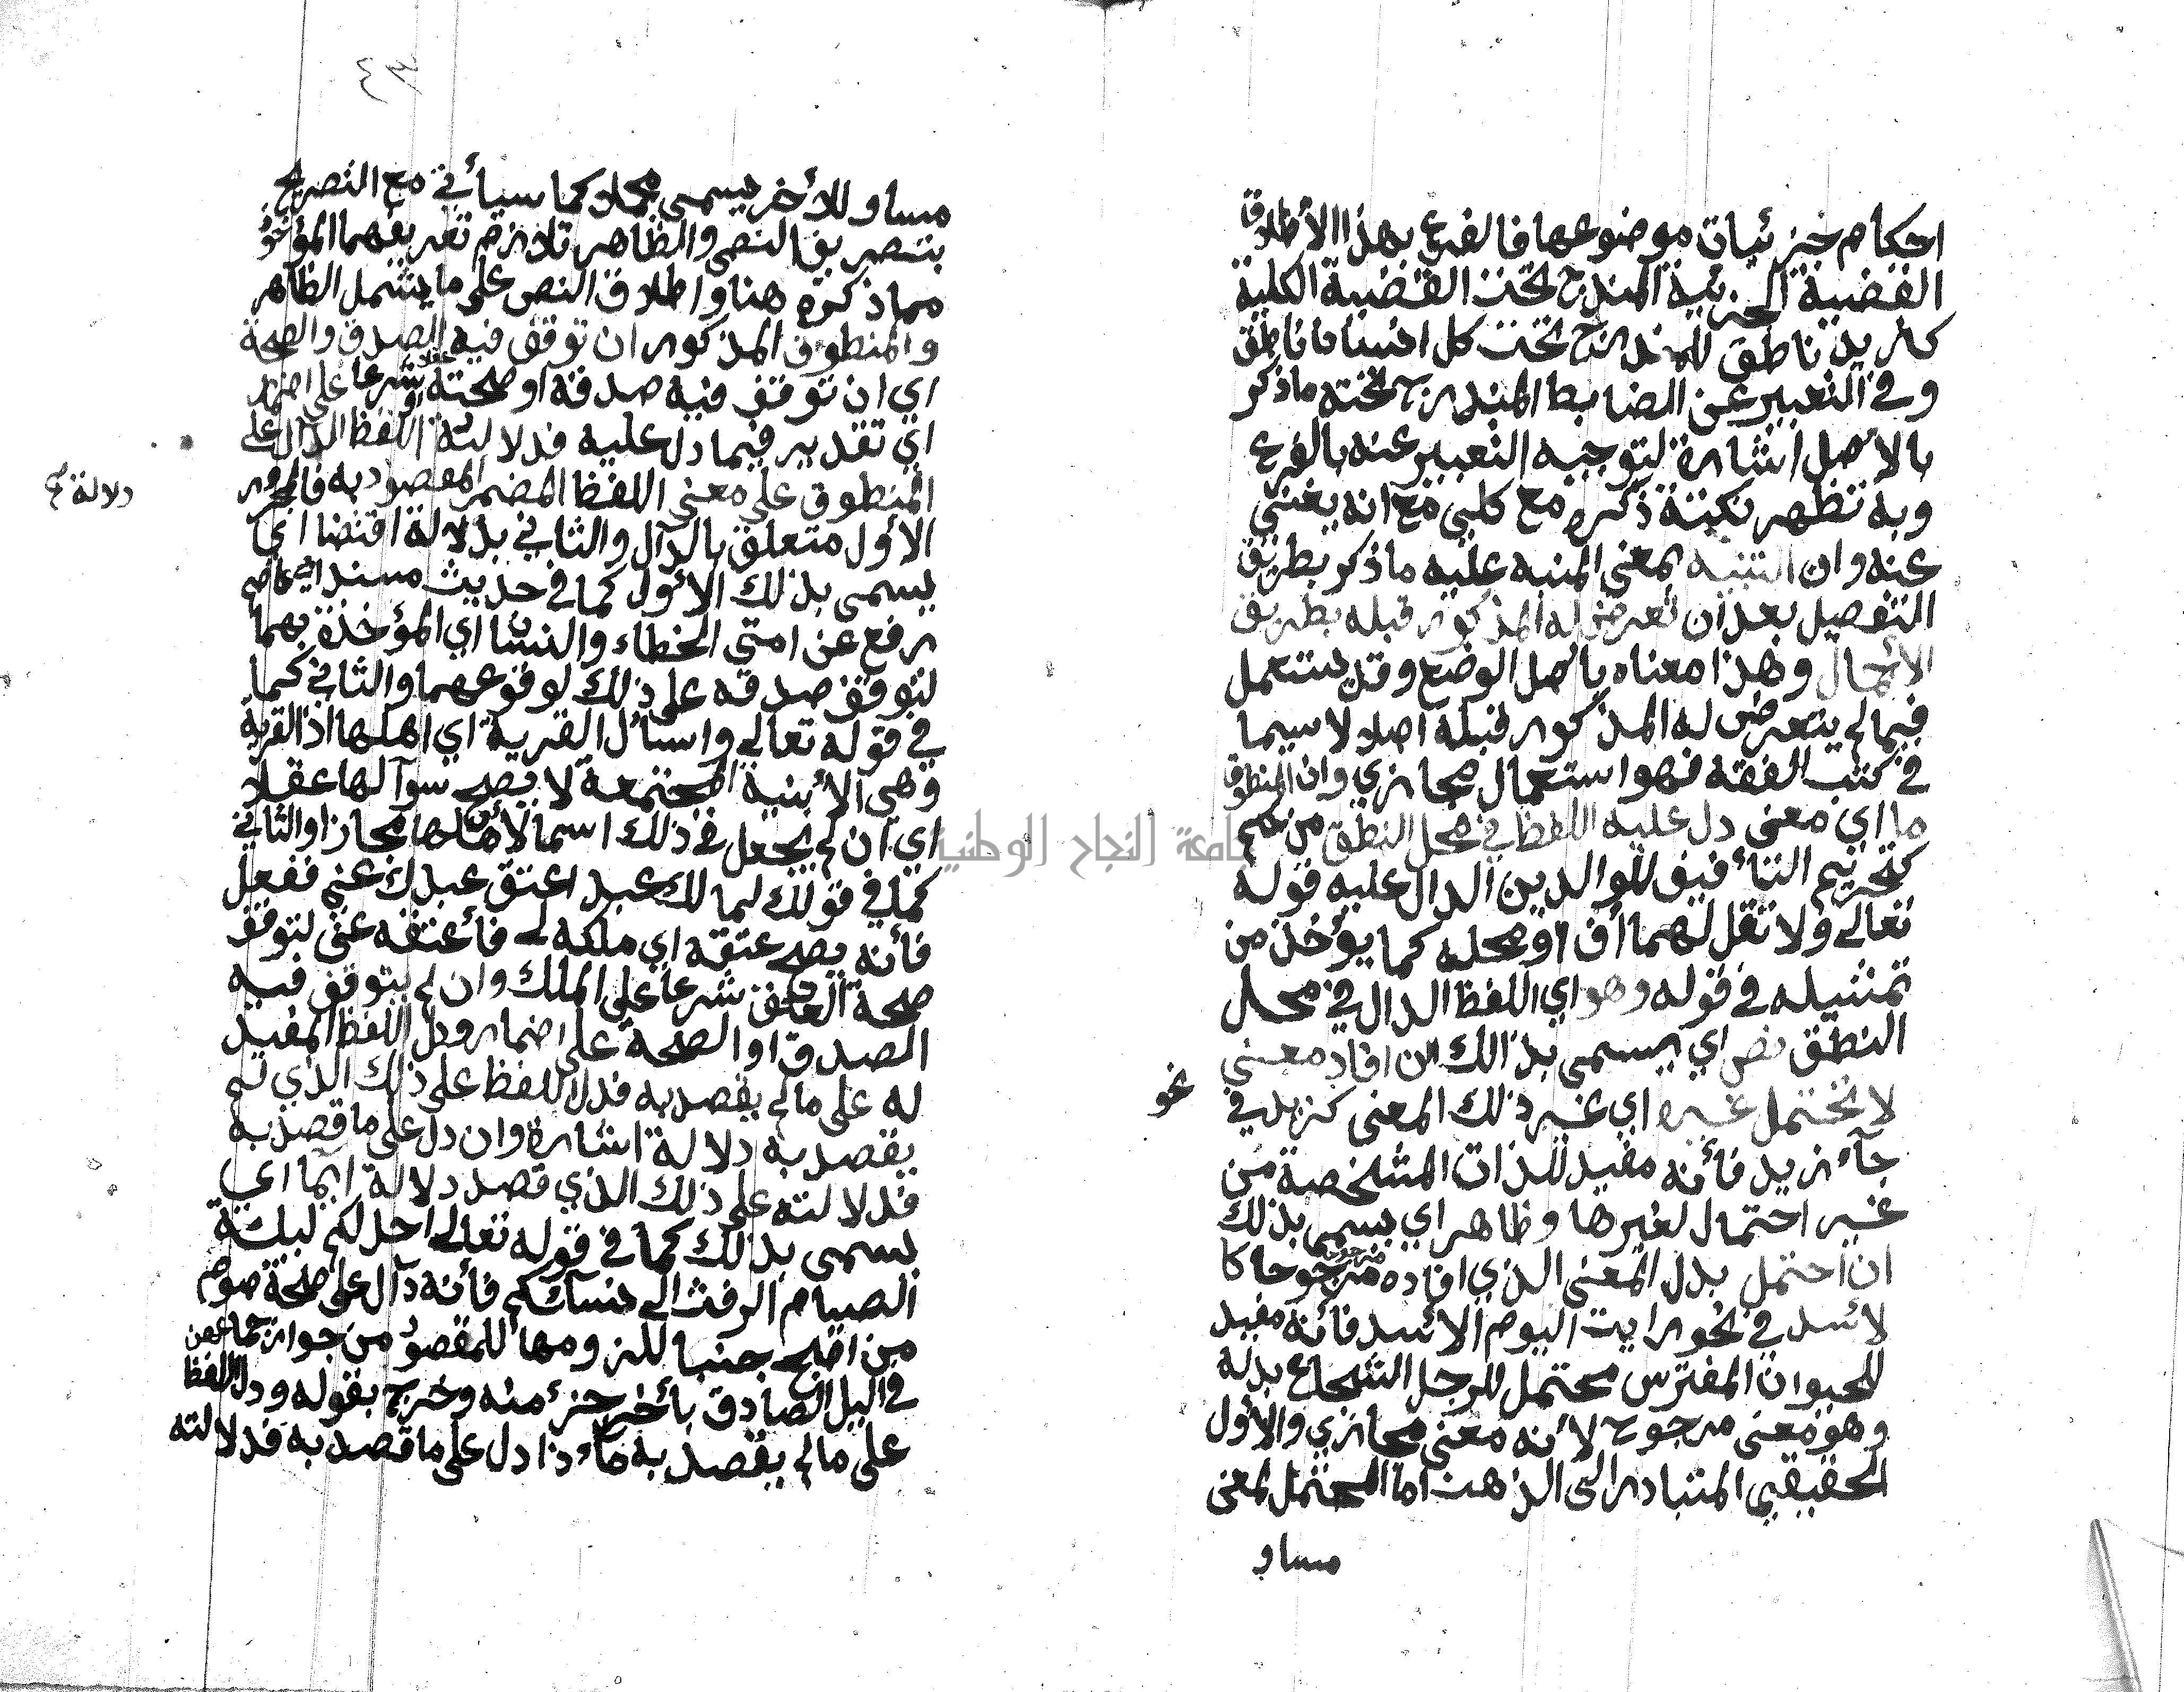 احكام جزئيات موضوعها فالفرع بهذا الأطلاق
القضية الجزئية المندرج تحت القضية الكلية
كزيد ناطق المندرج تحت كل انسان ناطق
وفي التعبير عن الضابط المندرج تحته ماذكر
بالأصل اشارة لتوجيه التعبير عنه بالفرع
وبه تظهر نكتة ذكره مع كلي مع انه يغني
عنه وان التنبيه بمعنى المنبه عليه ماذكر بطريق
التفصيل بعد ان تعرض له المذكور قبله بطريق
الأجمال وهذا معناه بأصل الوضع وقد يستعمل
فيمالم يتعرض له المذكور قبله اصلا لاسيما
في كتب الفقه فهو استعمال مجازي وان المنطوق
ما اي معنى دل عليه اللفظ في محل النطق من حكم
كتحريم التأفيف للوالدين الدال عليه قوله
تعالى ولا تقل لهما أف او محله كما يؤخذ من
تمثيله في قوله وهو اي اللفظ الدال في محل
النطق نص اي يسمى بذالك ان افاد معنى
لا يحتمل غيره اي غير ذلك المعنى كزيد في نحو
جآء زيد فأنه مفيد للذات المشخصة من
غير احتمال لغيرها وظاهر اي يسمى بذلك
ان احتمل بدل المعنى الذي افاده مرجوحا كا
لأسد في نحو رايت اليوم الأسد فأنه مفيد
للحيوان المفترس محتمل للرجل الشجاع بدله
وهو معنى مرجوح لأنه معنى مجازي والأول
الحقيقي المتبادر الى الذهن اما المحتمل لمعنى
مساو
٤٣
مساو للأخر يسمى مجملا كما سيأتي مع التصريح
بتصريف النص والظاهر تلازم تعريفهما المؤخوذ
مما ذكره هنا واطلاق النص على ما يشمل الظاهر
والمنطوق المذكور ان توقف فيه الصدق والصحة
اي ان توقف فيه صدقه او صحته عقلا او شرعا على اضمار
اي تقدير فيما دل عليه فدلالته اي اللفظ الدال على
المنطوق على معنى اللفظ المضمر المقصود به فالمجرور
الأول متعلق بالدال والثاني بدلالة اقتضا اي دلالة
يسمى بذلك الأول كما في حديث مسند اخي عاصم
رفع عن امتي الخطاء والنسيان اي المؤخذة بهما
لتوقف صدقه على ذلك لوقوعهما والثاني كما
في قوله تعالى واسأل القرية اي اهلها اذ القرية
وهي الأبنية المجتمعة لا يصح سوآلها عقلا
اي ان لم يجعل في ذلك اسما لأهلها مجازا والثاني
كما في قولك لمالك عبد اعتق عبدك عني ففعل
فأنه يصح عتقه اي ملكه لي فأعتقه عني لتوقف
صحة العتق شرعا على الملك وان لم يتوقف فيه
الصدق او الصحة على اضمار ودل اللفظ المفيد
له على مالم يقصد به فدل اللفظ على ذلك الذي لم
يقصد به دلالة اشارة وان دل على ما قصد به
فدلالته على ذلك الذي قصد دلالة ايما اي
يسمى بذلك كما في قوله تعالى احل لكم ليلة
الصيام الرفث الى نسآئكم فأنه دآل على صحة صوم
من اصبح جنبا للزومها للمقصود من جواز جماعهن
في اليل الصادق بأخر جزء منه وخرج بقوله ودل اللفظ
على مالم يقصد به ماء ذا دل على ما قصد به فدلالته